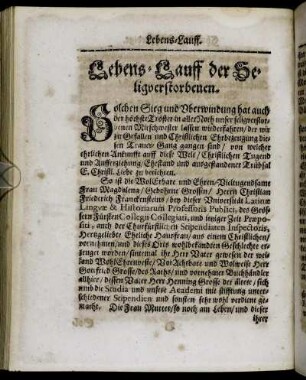 Lebens-Lauff.
Lebens-Lauff der Se-
ligverstorbenen.
Solchen Sieg und Uberwindung hat auch
der höchste Tröster in aller Noth unser
Mitschwester lassen wiederfahren, der wir
zu Gefallen und Christlichen Ehrbezeigung die-
sen Trauer-Gang gangen sind, von welcher
ehrlichen Ankunfft auff diese Welt, Christlichen Tugend
und Aufferziehung, Ehestand und ausgestandener Trübsal
E. Christl. Liebe zu berichten.
So ist die Wol Erbare und Ehren-Vieltugendsame
Frau Magdalena, Gebohrne Grossin, Herrn Christian
Friederich Franckensteins, bey dieser Universität Latinæ
Linguæ & Historiarum Professoris Publici, des Gros-
sen Fürsten Collegii Collegiati, und itziger Zeit Præpo-
siti, auch der Churfürstlichen Stipendiaten Inspectoris,
Hertzgeliebte Eheliche Hausfrau, aus einem Christlichen,
vornehmen, und dieses Orts wohlbekandten Geschlechte er-
zeuget worden, sintemal ihr Herr Vater gewesen der wei-
land Wohl Ehrenveste, Vor Achtbare und Wolweise Herr
Gottfried Grosse, des Raths, und vornehmer Buchhändler
allhier, dessen Vater Herr Henning Grosse der ältere, sich
umb die Studia und unsere Academi mit stifftung unter-
schiedener Stipendien und sonsten sehr wohl verdient ge-
macht. Die Frau Mutter, so noch am Leben, und dieser
ihrer